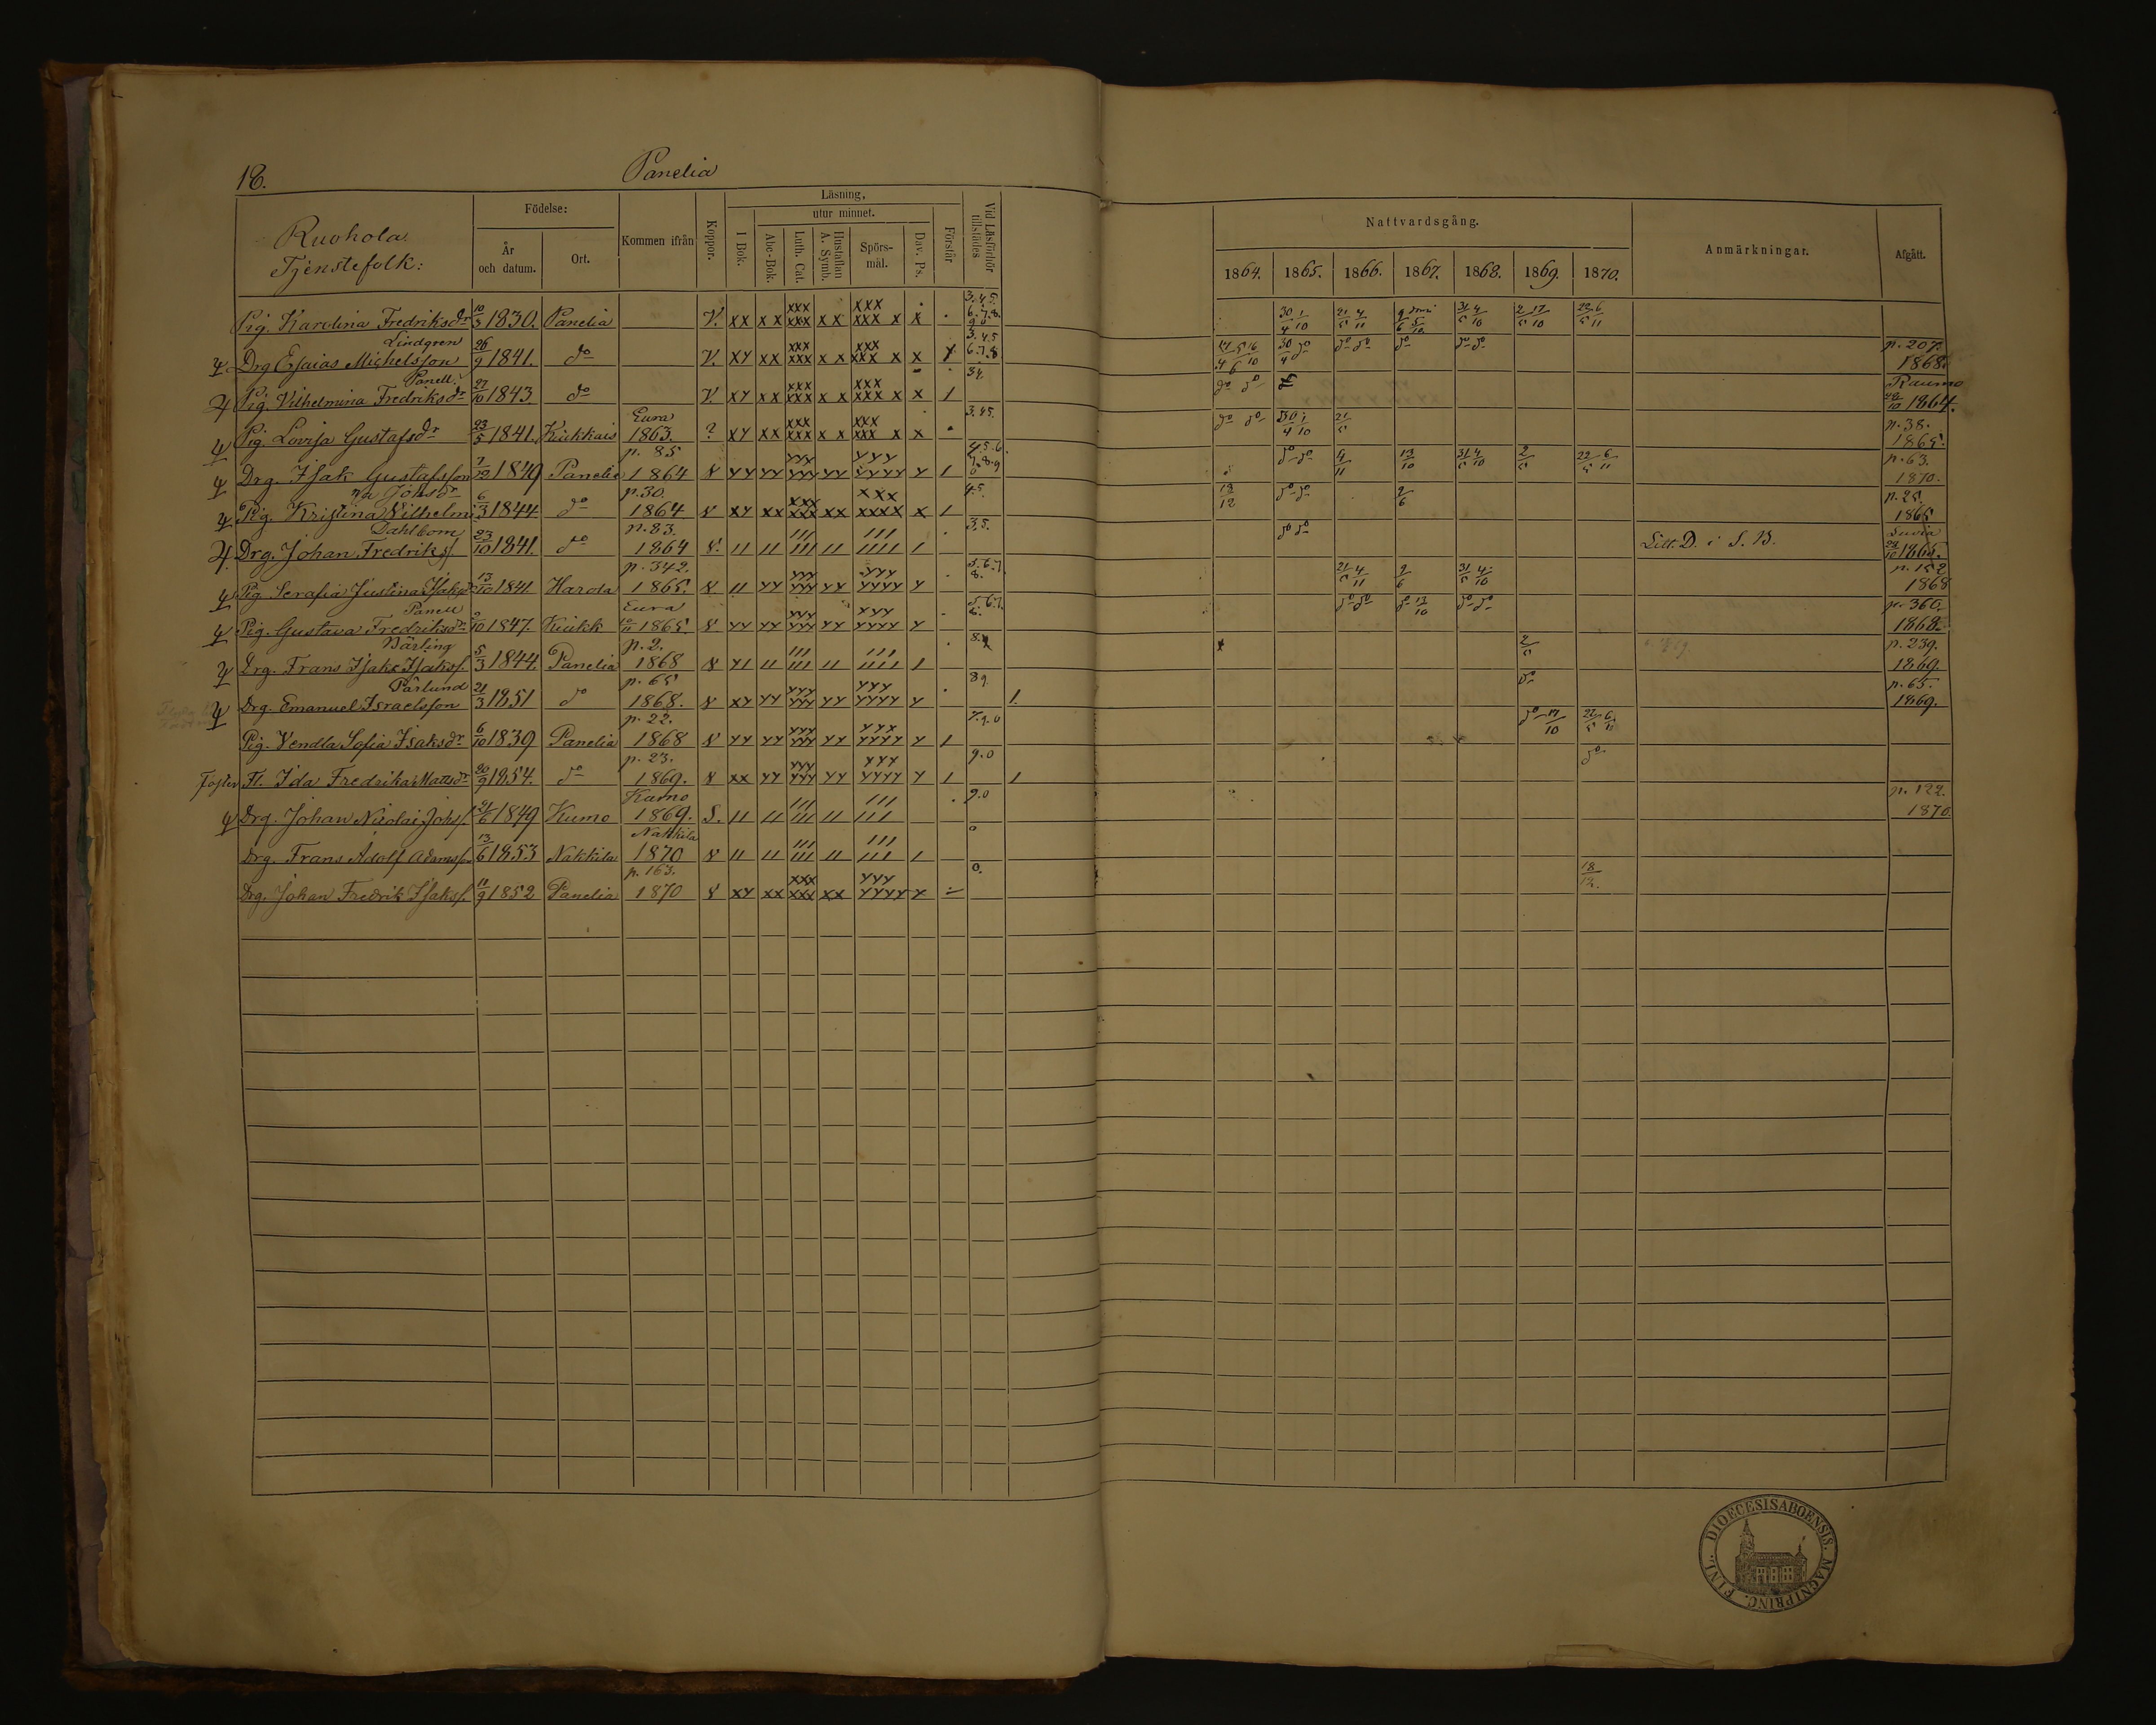 18. Panelia
Ruohola
Tjenstefolk:
Födelse:
År och datum.
Ort.
Kommen ifrån
Koppor.
Läsning,
utur minnet.
I Bok.
Abc-Bok.
Luth. Cat.
Hustaflan A. Symb.
Spörs-mål.
Dav. Ps.
Förstår
Vid Läsförhör tillstädes
Nattvardsgång.
1864. 1865. 1866. 1867. 1868. 1869. 1870.
Anmärkningar.
Afgått.
Pig. Karolina Fredriksdr 10/3 1830. Panelia V. xx xx xxx xxx xx xxx xxx x x 3.4.5. 6.7.8. 9 0 30/4 1/10 21/5 4/11 31/5 4/10 2/5 17/10 22/5 6/11
Lindgren
Drg Esaias Michelsson 26/9 1841. do V. xy xx xxx xxx x x xxx xxx x x 3.4.5 6.7.8 30/4 do do do do do do p. 207. 1868.
Panell
Pig. Vilhelmina Fredriksdr 27/10 1843 do V. xy xx xxx xxx x x xxx xxx x x 1 34 do do Raumo 1864.
Pig. Lovisa Gustafsdr 23/5 1841. Kiukkais Eura 1863. ? xy xx xxx xxx x x xxx xxx x x 3.45. do do 30/4 1/10 21/5 p. 38. 1865.
Drg. Isak Gustafsson 7/12 1849 Panelia p. 85 1864 yy yy yyy yyy yy yyy yyyy y 1 4.5.6. 7.8.9 0 do do 4/11 13/10 31/5 4/10 2/5 22/5 6/11 p. 63. 1870.
Johsdr
Pig. Kristina Vilhelm: 6/3 1844 do p. 30. 1864 xy xx xxx xxx xx xxx xxxx x 1 4.5. 18/12 do do 9/6 p. 25. 1865
Dahlbom
Drg. Johan Fredriks. 23/10 1841. do p. 83. 1864 11 11 111 111 11 111 1111 1 3.5. do do Litt. D. i S. B. Luvia 1865.
Pig. Serafia Justina Isaksdr 13/10 1841. Harola p. 342. 1865. 11 yy yyy yyy yy yyy yyyy y 5.6.7. 8. 21/5 4/11 9/6 31/5 4/10 p. 152 1868
Panell
Pig. Gustava Fredriksdr 1847. Kiukk Eura 1865. yy yy yyy yyy yy yyy yyyy y 5.6.7. 8. do do do 13/10 do do p. 360. 1868.
Bärling
Drg. Frans Isak Isaks. 5/3 1844. Panelia p. 2. 1868 11 11 111 111 11 111 1111 1 2/5 p. 239. 1869.
Pärlund
Drg. Emanuel Israelsson 21/3 1851 do p. 65 1868. xy yy yyy yyy yy yyy yyyy y 1. 89. do p. 65. 1869.
Pig. Vendla Sofia Isaksdr 6/10 1839 Panelia p. 22. 1868 yy yy yyy yyy yy yyy yyyy y 1 do 17/10 22/5 6/11
Foster Fl. Ida Fredrika Mattsdr 20/9 1854. do p. 23. 1869. xx yy yyy yyy yy yyy yyyy y 1 1 9.0 do
Drg. Johan Nicolai Johs. 1849 Kumo Kumo 1869. S. 11 11 111 111 11 111 111 9.0 p. 122. 1870.
Drg. Frans Adolf Adamsson 13/6 1853 Nakkila Nakkila 1870 11 11 111 111 11 111 111 1 0
Drg. Johan Fredrik Isaks. 11/9 1852 Panelia p. 163. 1870 xy xx xxx xxx xx yyy yyyy y 0. 18/12.
FINL. DIOECESIS ABOENSIS. MAGNI PRINC.